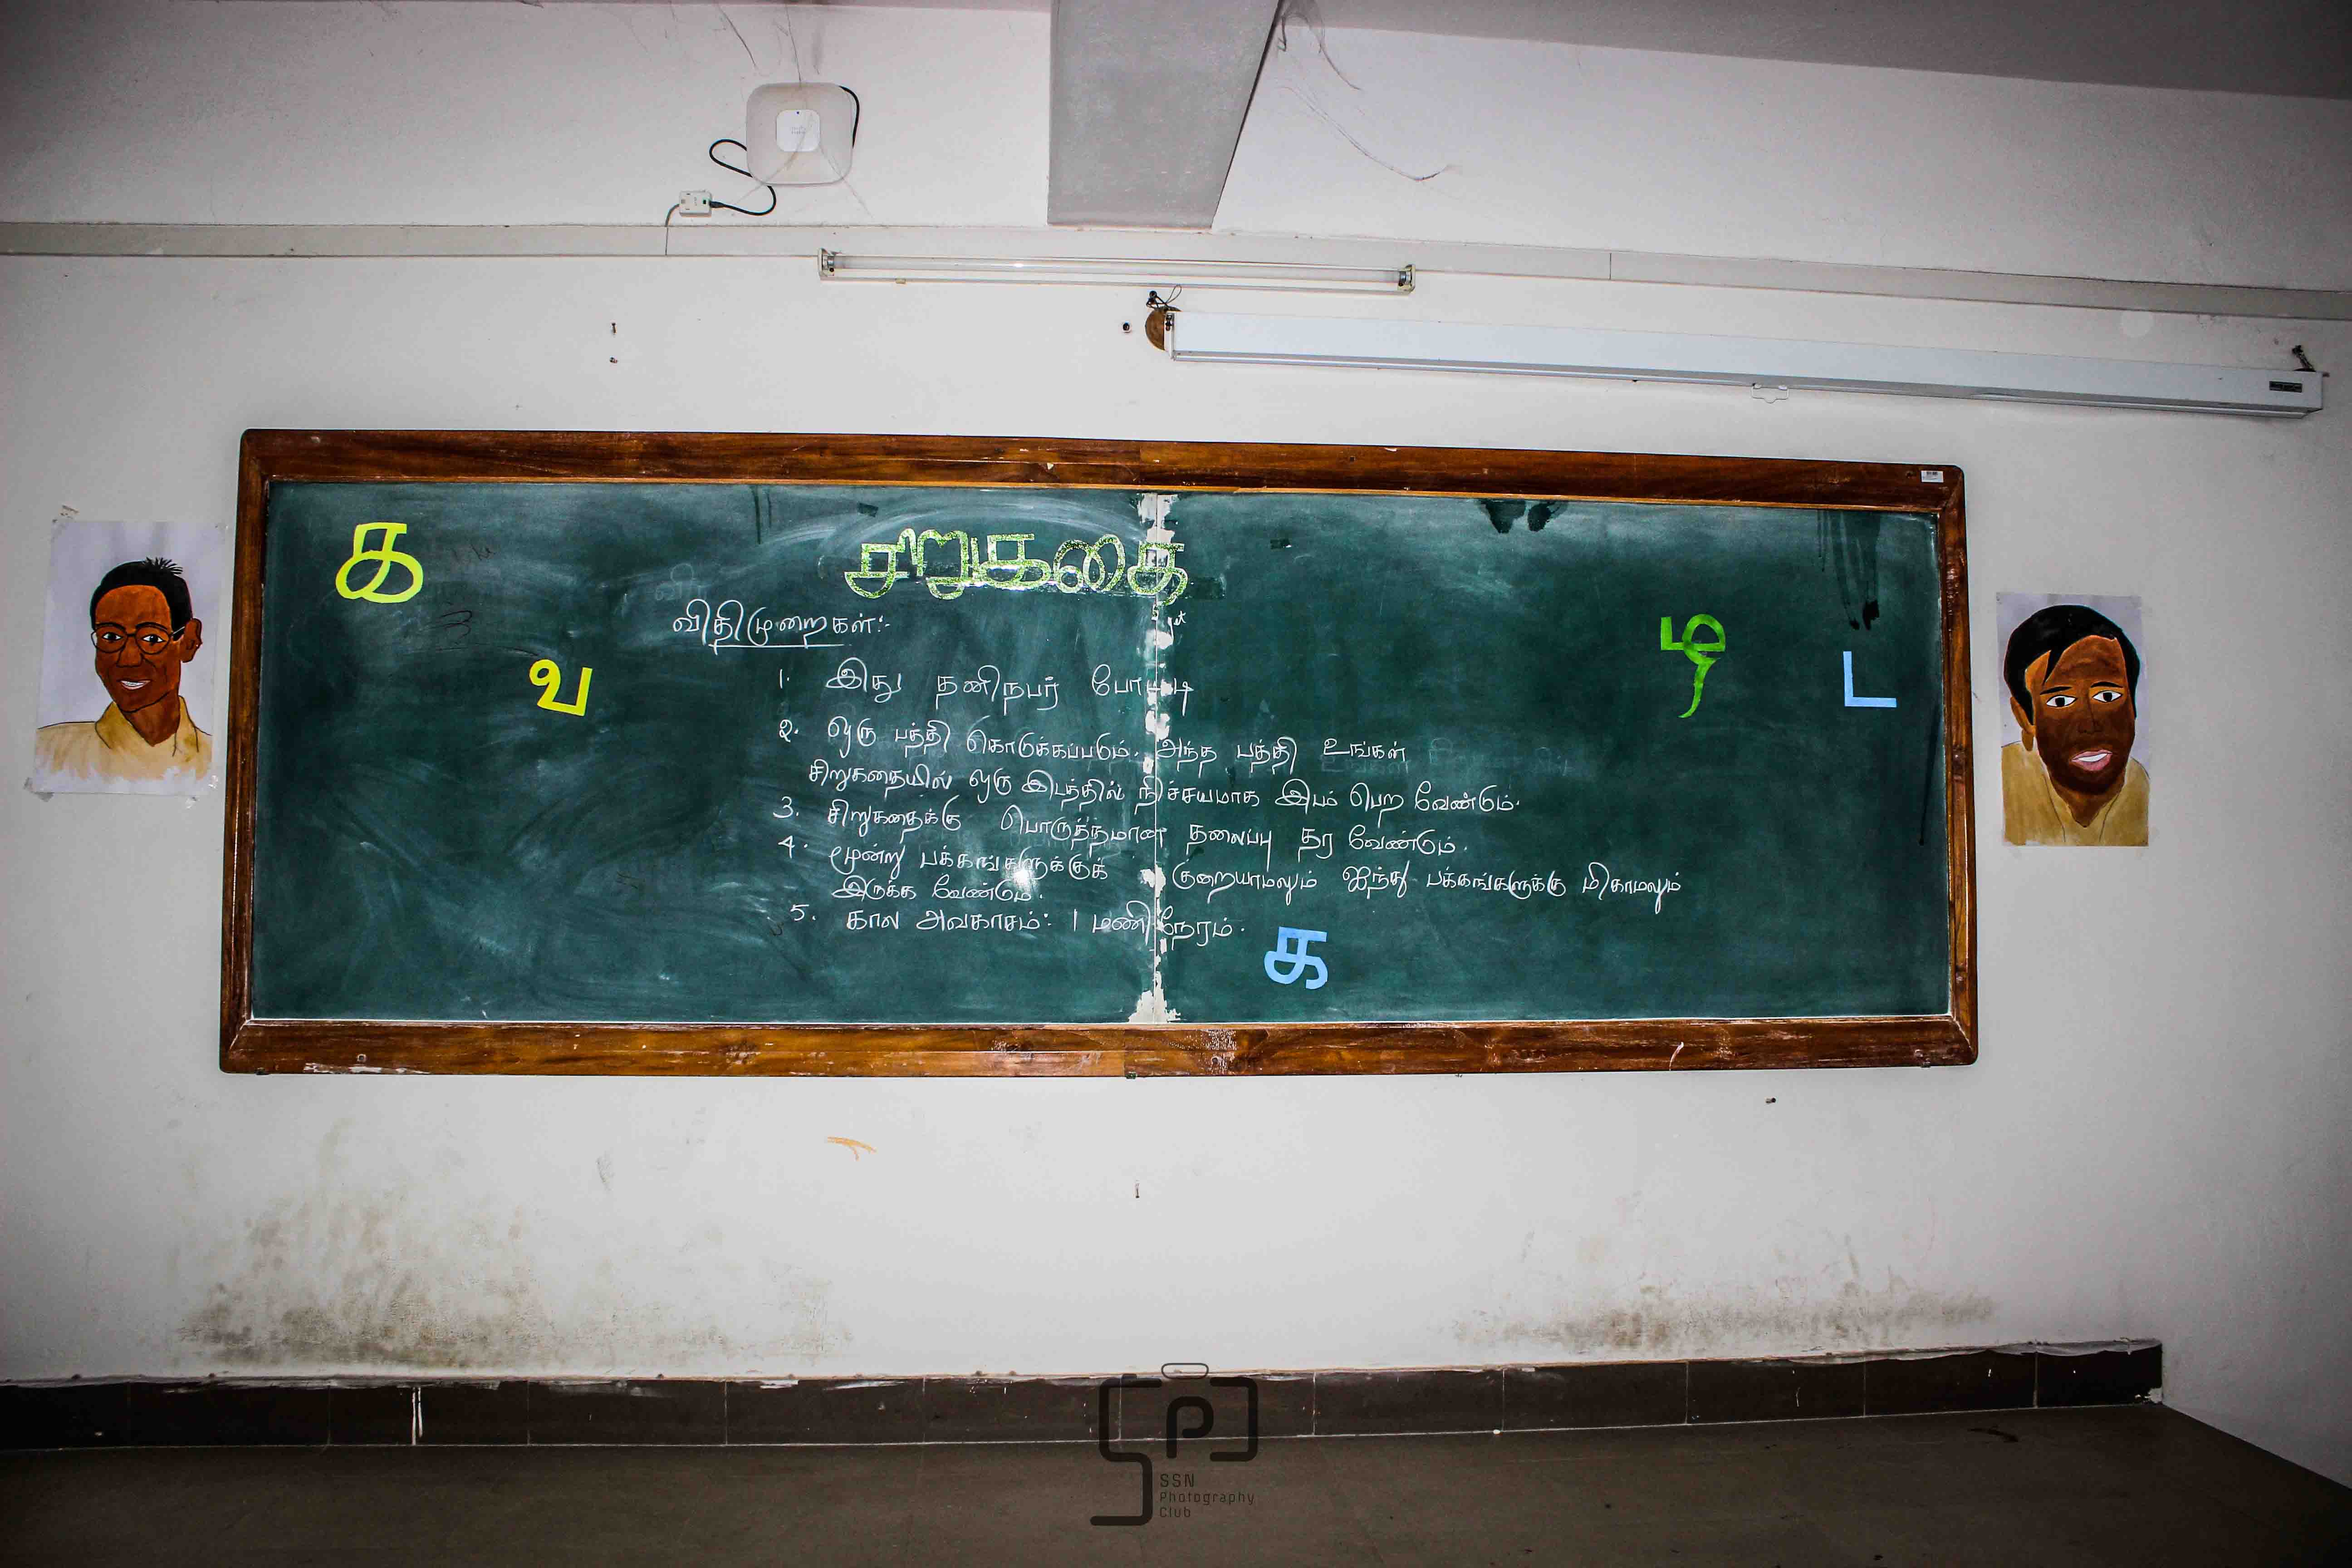 சிறுகதை
க
விதிமுறைகள்:-
வ
ழ
ட
1. இது தனிநபர் போட்டி
2. ஒரு பத்தி கொடுக்கப்படும். அந்த பத்தி உங்கள்
சிறுகதையில் ஒரு இடத்தில் நிச்சயமாக இடம் பெற வேண்டும்.
3. சிறுகதைக்கு பொருத்தமான தலைப்பு தர வேண்டும்.
4. மூன்று பக்கங்களுக்குக் குறையாமலும் ஐந்து பக்கங்களுக்கு மிகாமலும்
இருக்க வேண்டும்.
5. கால அவகாசம்: 1 மணி நேரம்.
க
SP
SSN
Photography
Club